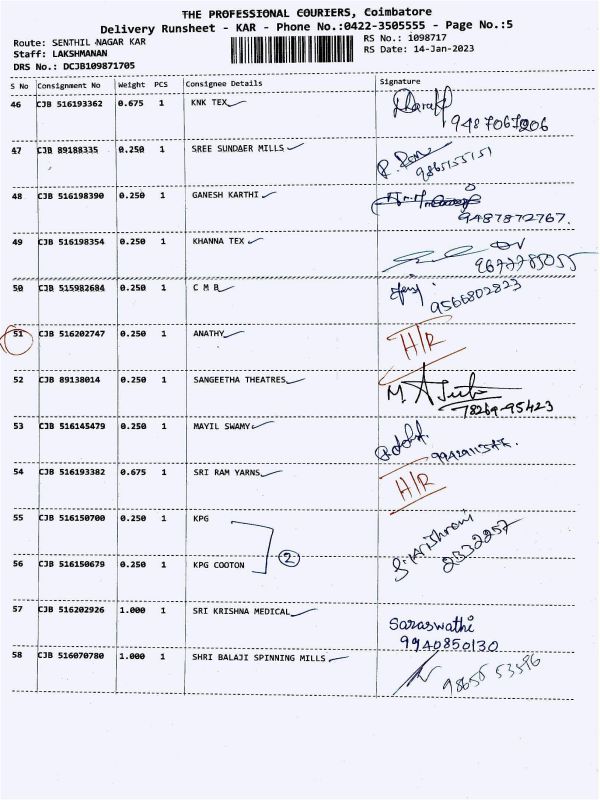 THE PROFESSIONAL COURIERS, Coimbatore
Delivery Runsheet - KAR - Phone No.:0422-3505555 - Page No.:5
Route: SENTHIL NAGAR KAR
RS No.: 1098717
Staff: LAKSHMANAN
RS Date: 14-Jan-2023
DRS No.: DCJB109871705
S No Consignment No Weight PCS Consignee Details Signature
46 CJB 516193362 0.675 1 KNK TEX
9487067206
47 CJB 89188335 0.250 1 SREE SUNDAER MILLS
9865155151
48 CJB 516198390 0.250 1 GANESH KARTHI
9487872767.
49 CJB 516198354 0.250 1 KHANNA TEX
50 CJB 515982684 0.250 1 C M B
9566802823
51 CJB 516202747 0.250 1 ANATHY H/R
52 CJB 89138014 0.250 1 SANGEETHA THEATRES
78269-95423
53 CJB 516145479 0.250 1 MAYIL SWAMY
54 CJB 516193382 0.675 1 SRI RAM YARNS H/R
55 CJB 516150700 0.250 1 KPG
2
2332257
56 CJB 516150679 0.250 1 KPG COOTON
57 CJB 516202926 1.000 1 SRI KRISHNA MEDICAL
Saraswathi
9940850130
58 CJB 516070780 1.000 1 SHRI BALAJI SPINNING MILLS
98656 53596